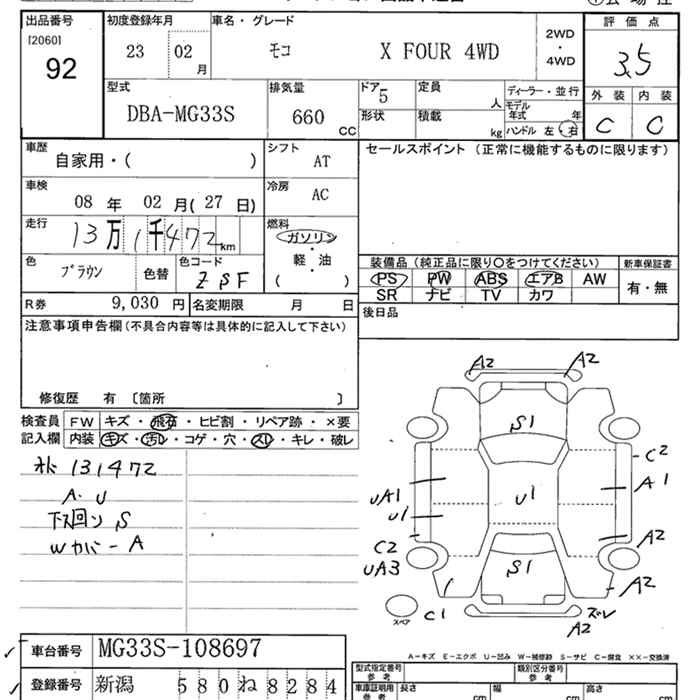 出品番号 初度登録年月 車名・グレード 評価点
[2060] 92 23 02月 モコ X FOUR 4WD 2WD・4WD 3.5
型式 排気量 ドア 5 定員 人 ディーラー・並行 外装 内装
DBA-MG33S 660 CC 形状 積載 kg モデル年式 年 ハンドル 左・右 C C
車歴 自家用・( ) シフト AT セールスポイント (正常に機能するものに限ります)
車検 08年 02月(27日) 冷房 AC
走行 13万1千472km 燃料 ガソリン
軽・油
( )
色 ブラウン 色替 色コード ZSF
装備品(純正品に限り〇をつけてください) 新車保証書
PS PW ABS エアB AW 有・無
SR ナビ TV カワ
R券 9,030円 名変期限 月 日
後日品
注意事項申告欄(不具合内容等は具体的に記入して下さい)
修復歴 有 〔箇所 〕
検査員 FW キズ・飛石・ヒビ割・リペア跡・×要
記入欄 内装 キズ・汚レ・コゲ・穴・スレ・キレ・破レ
131472
A・U
下回り S
Wカバー A
A2 A2
S1
C2
A1
UA1
U1
U1
C2
A2
UA3
S1
A2
スペア
C1
ズレ
A2
A-キズ E-エクボ U-凹み W-補修跡 S-サビ C-腐食 ××-交換済
車台番号 MG33S-108697
登録番号 新潟 580 ね 8284
型式指定番号 参考 類別区分番号 参考
車庫証明用 参考 長さ cm 幅 cm 高さ cm